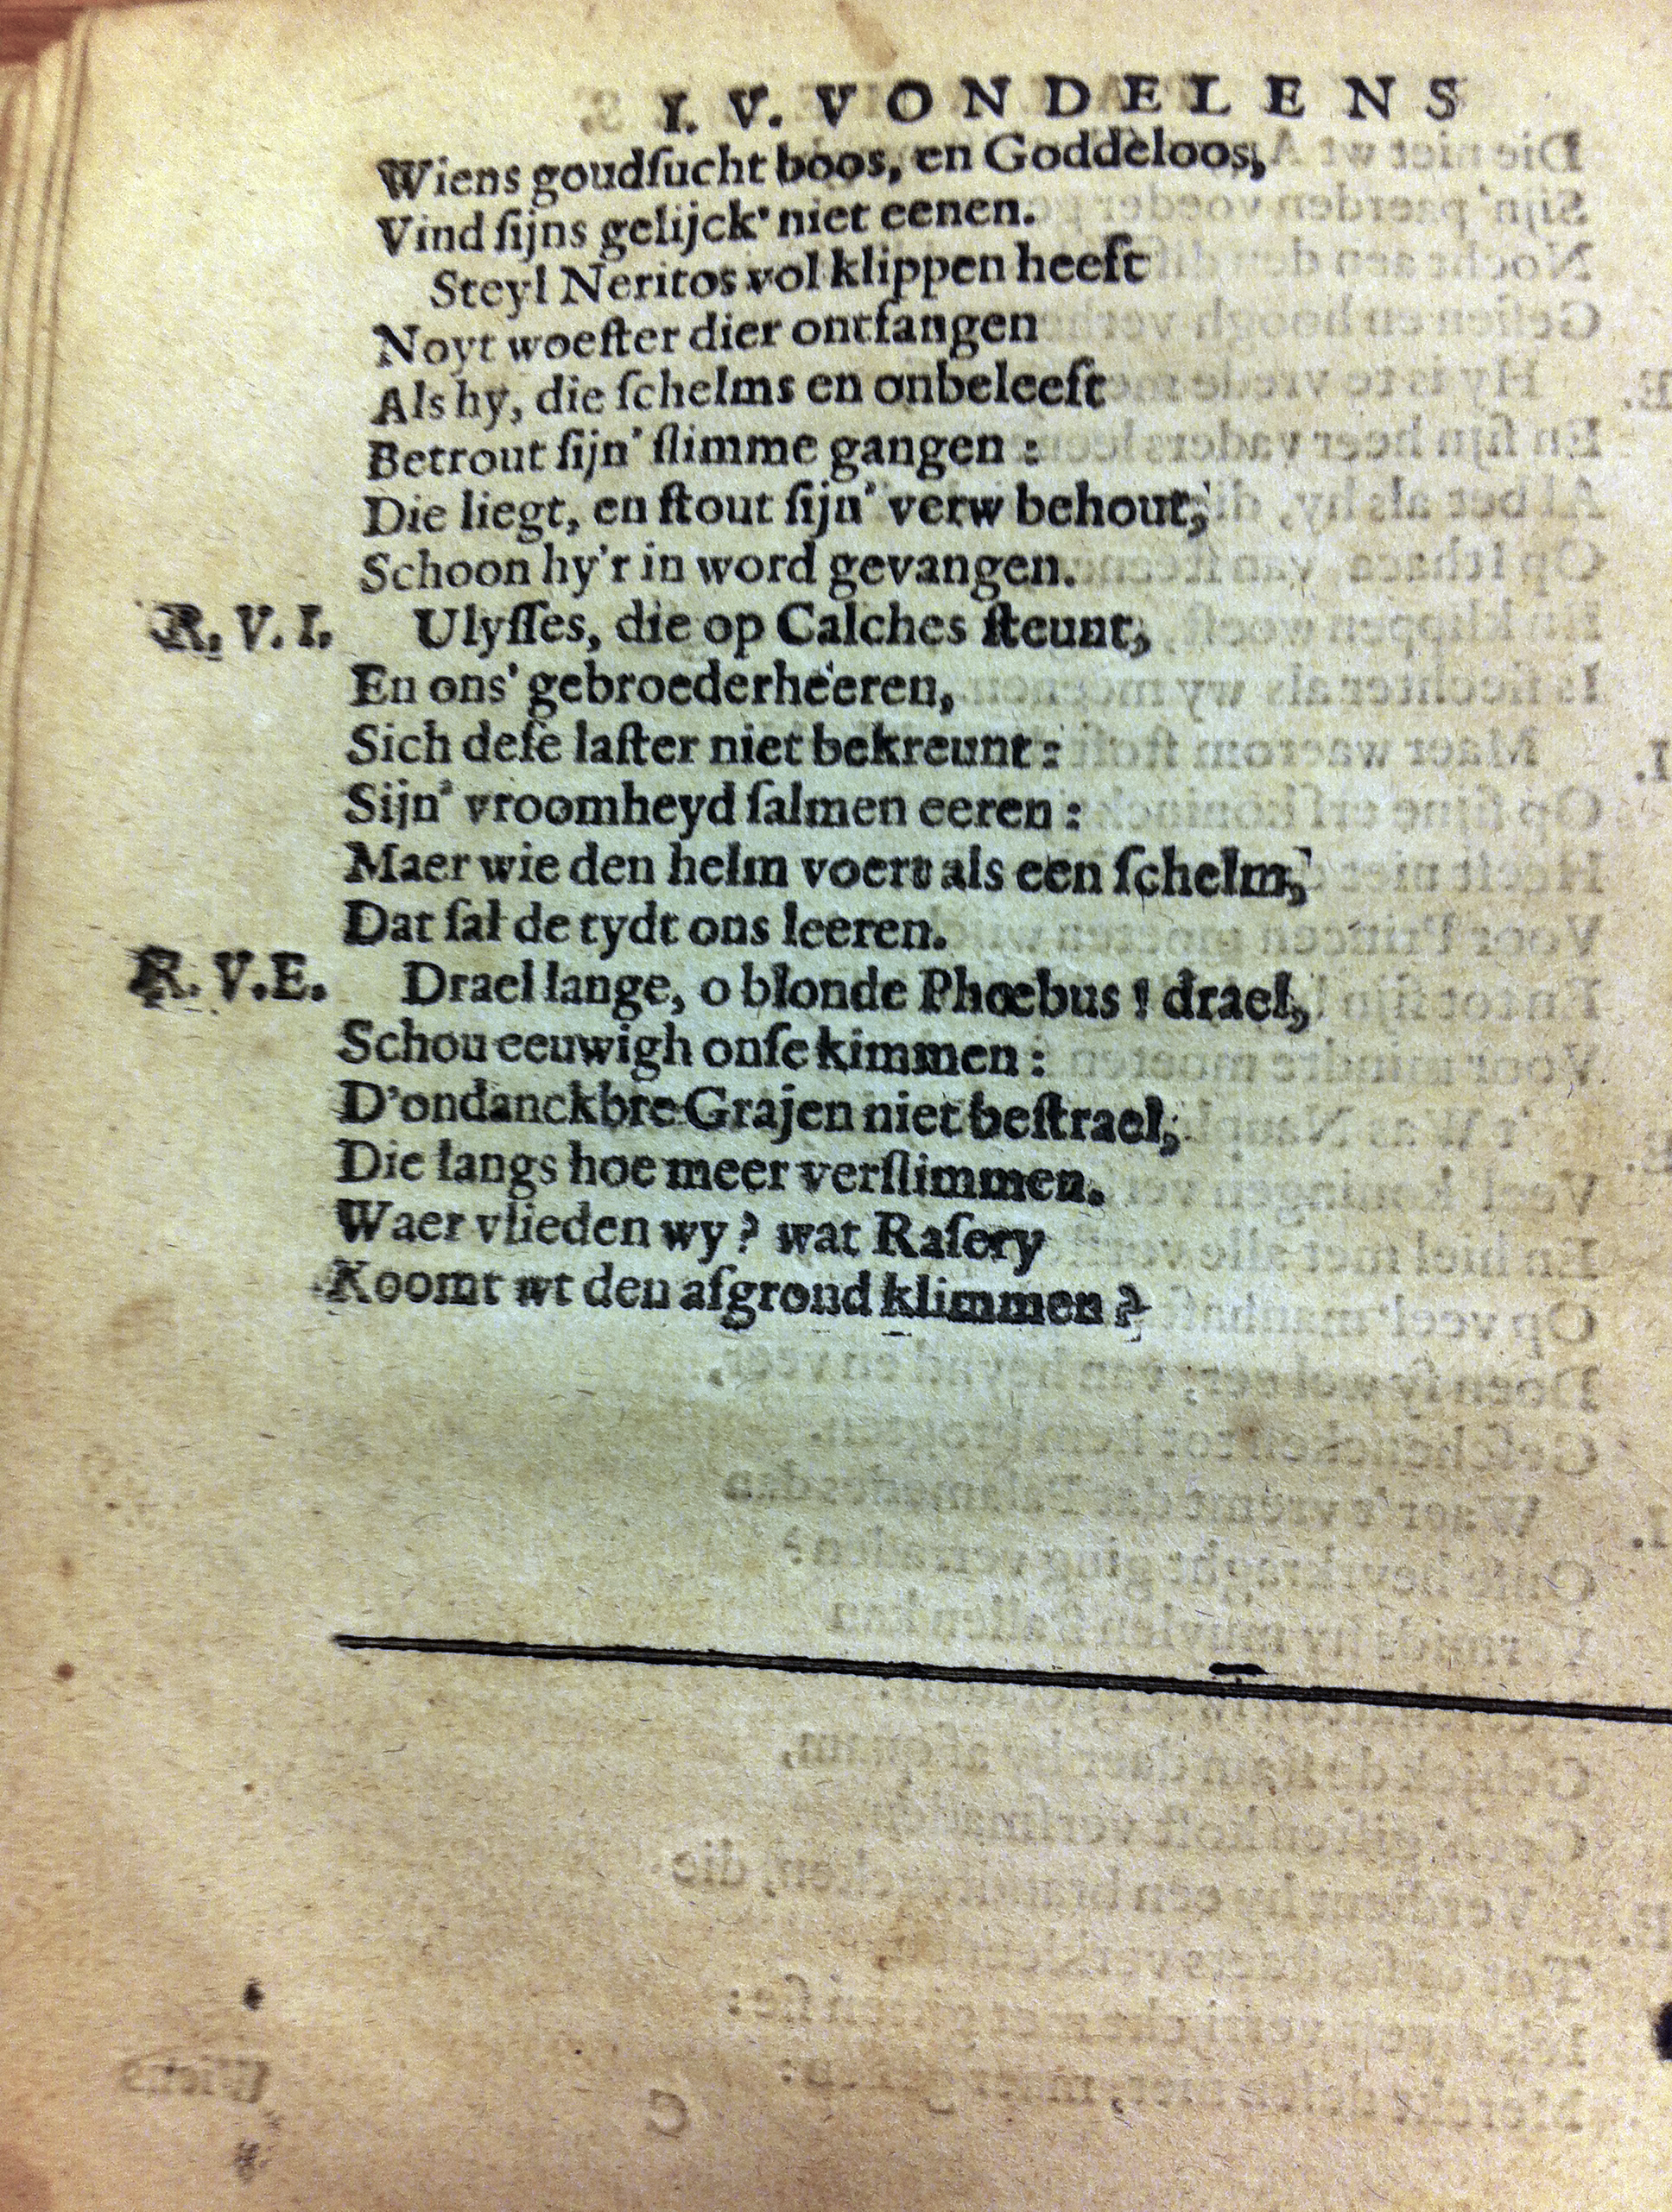 I. V. VONDELENS
Wiens goudſucht boos, en Goddeloos,
Vind ſijns gelijck' niet eenen.
Steyl Neritos vol klippen heeft
Noyt woeſter dier ontfangen
Als hy, die ſchelms en onbeleeft
Betrout ſijn' ſlimme gangen :
Die liegt, en ſtout ſijn' verw behout,
Schoon hy'r in word gevangen.
R. V. I. Ulyſſes, die op Calches ſteunt,
En ons' gebroederheeren,
Sich deſe laſter niet bekreunt :
Sijn' vroomheyd ſalmen eeren :
Maer wie den helm voert als een ſchelm,
Dat ſal de tydt ons leeren.
R. V. E. Drael lange, o blonde Phœbus ! drael,
Schou eeuwigh onſe kimmen :
D'ondanckbre Grajen niet beſtrael,
Die langs hoe meer verſlimmen.
Waer vlieden wy ? wat Raſery
Koomt wt den afgrond klimmen ?